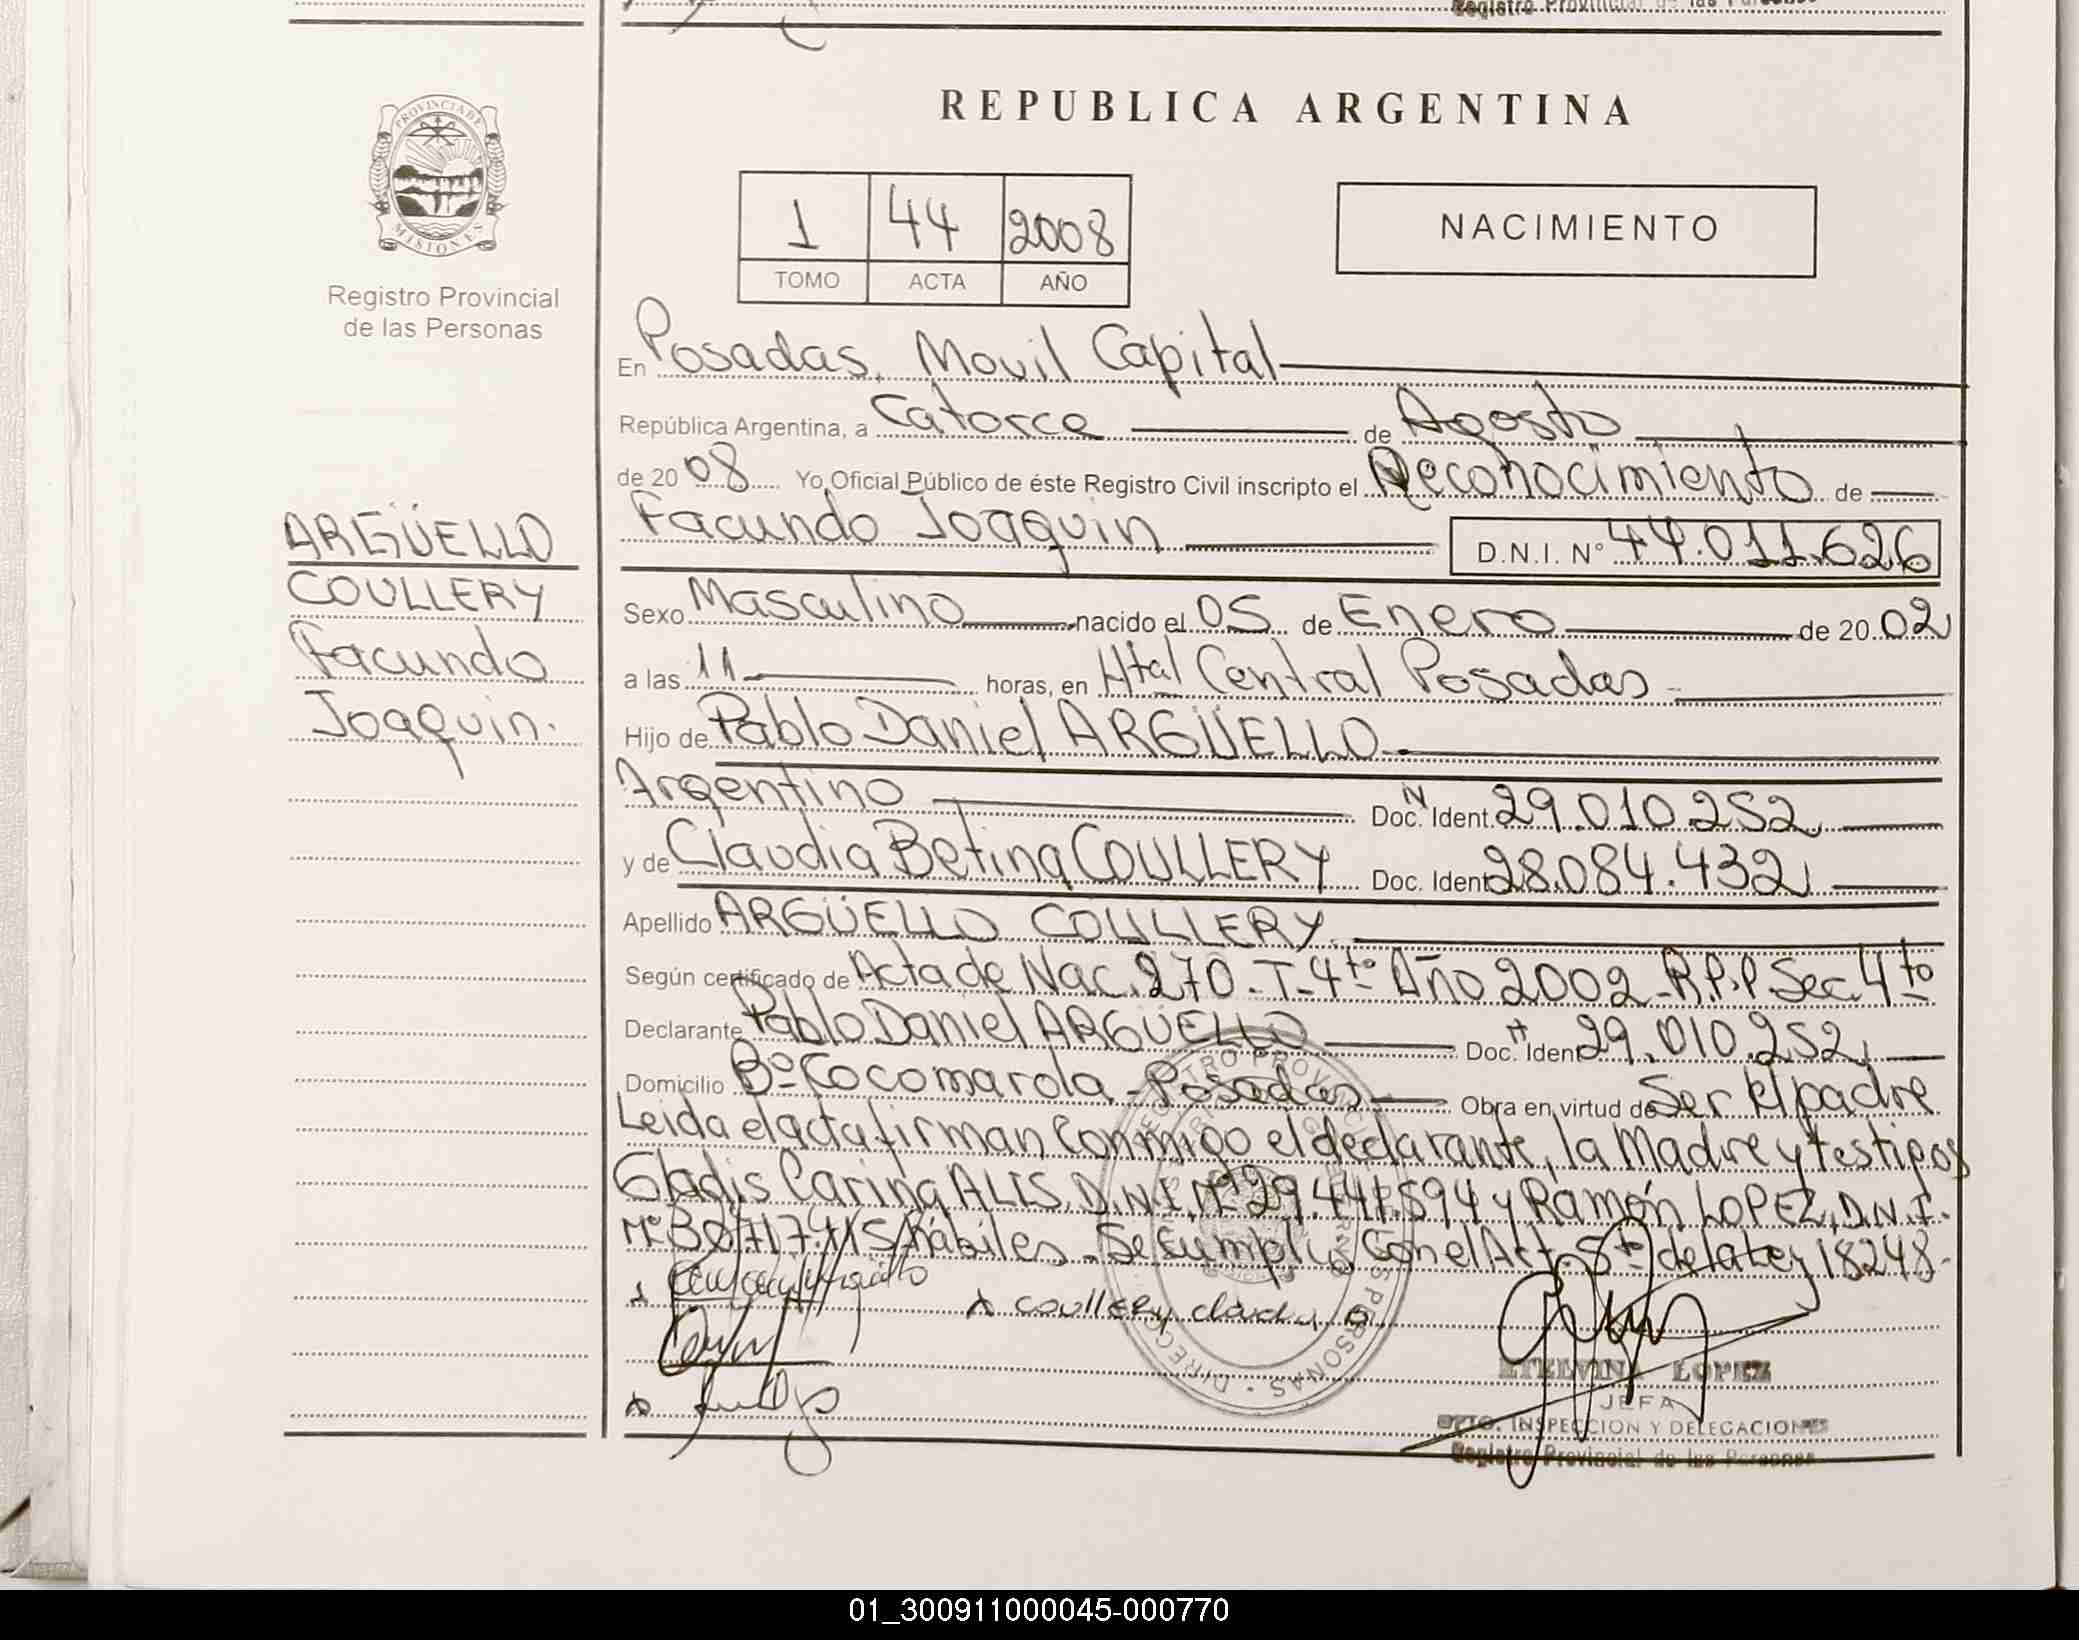 Registro Provincial de las Personas
REPUBLICA ARGENTINA
PROVINCIA DE
MISIONES
Registro Provincial
de las Personas
1 44 2008
TOMO ACTA AÑO
NACIMIENTO
En Posadas, Movil Capital
República Argentina, a Catorce de Agosto
de 2008 Yo Oficial Público de éste Registro Civil inscripto el Reconocimiento de
Facundo Joaquin D.N.I. N° 44.011.626
ARGÜELLO
COULLERY
Facundo
Joaquin.
Sexo Masculino nacido el 05 de Enero de 2002
a las 11 horas, en Htal Central Posadas
Hijo de Pablo Daniel ARGÜELLO
Argentino Doc. Ident. 29.010.252
y de Claudia Betina COULLERY Doc. Ident 28.084.432
Apellido ARGÜELLO COULLERY
Según certificado de Acta de Nac. 270 - T-4to Año 2002 - R.P.P Sec. 4to
Declarante Pablo Daniel ARGÜELLO Doc. Ident 29.010.252
Domicilio Bº Cocomarola - Posadas Obra en virtud de Ser El padre
Leida el acta firman Conmigo el declarante, la Madre y testigos
Gladis Carina ALIS, D.N.I. Nº 29.441.594 y Ramón LOPEZ, D.N.I.
Nº 30.717.415 Hábiles - Se Cumplió Con el Art. 5to de la Ley 18248-
x Coullery Claudia
ETELVINA LOPEZ
JEFA
DPTO. INSPECCION Y DELEGACIONES
Registro Provincial de las Personas
01_300911000045-000770